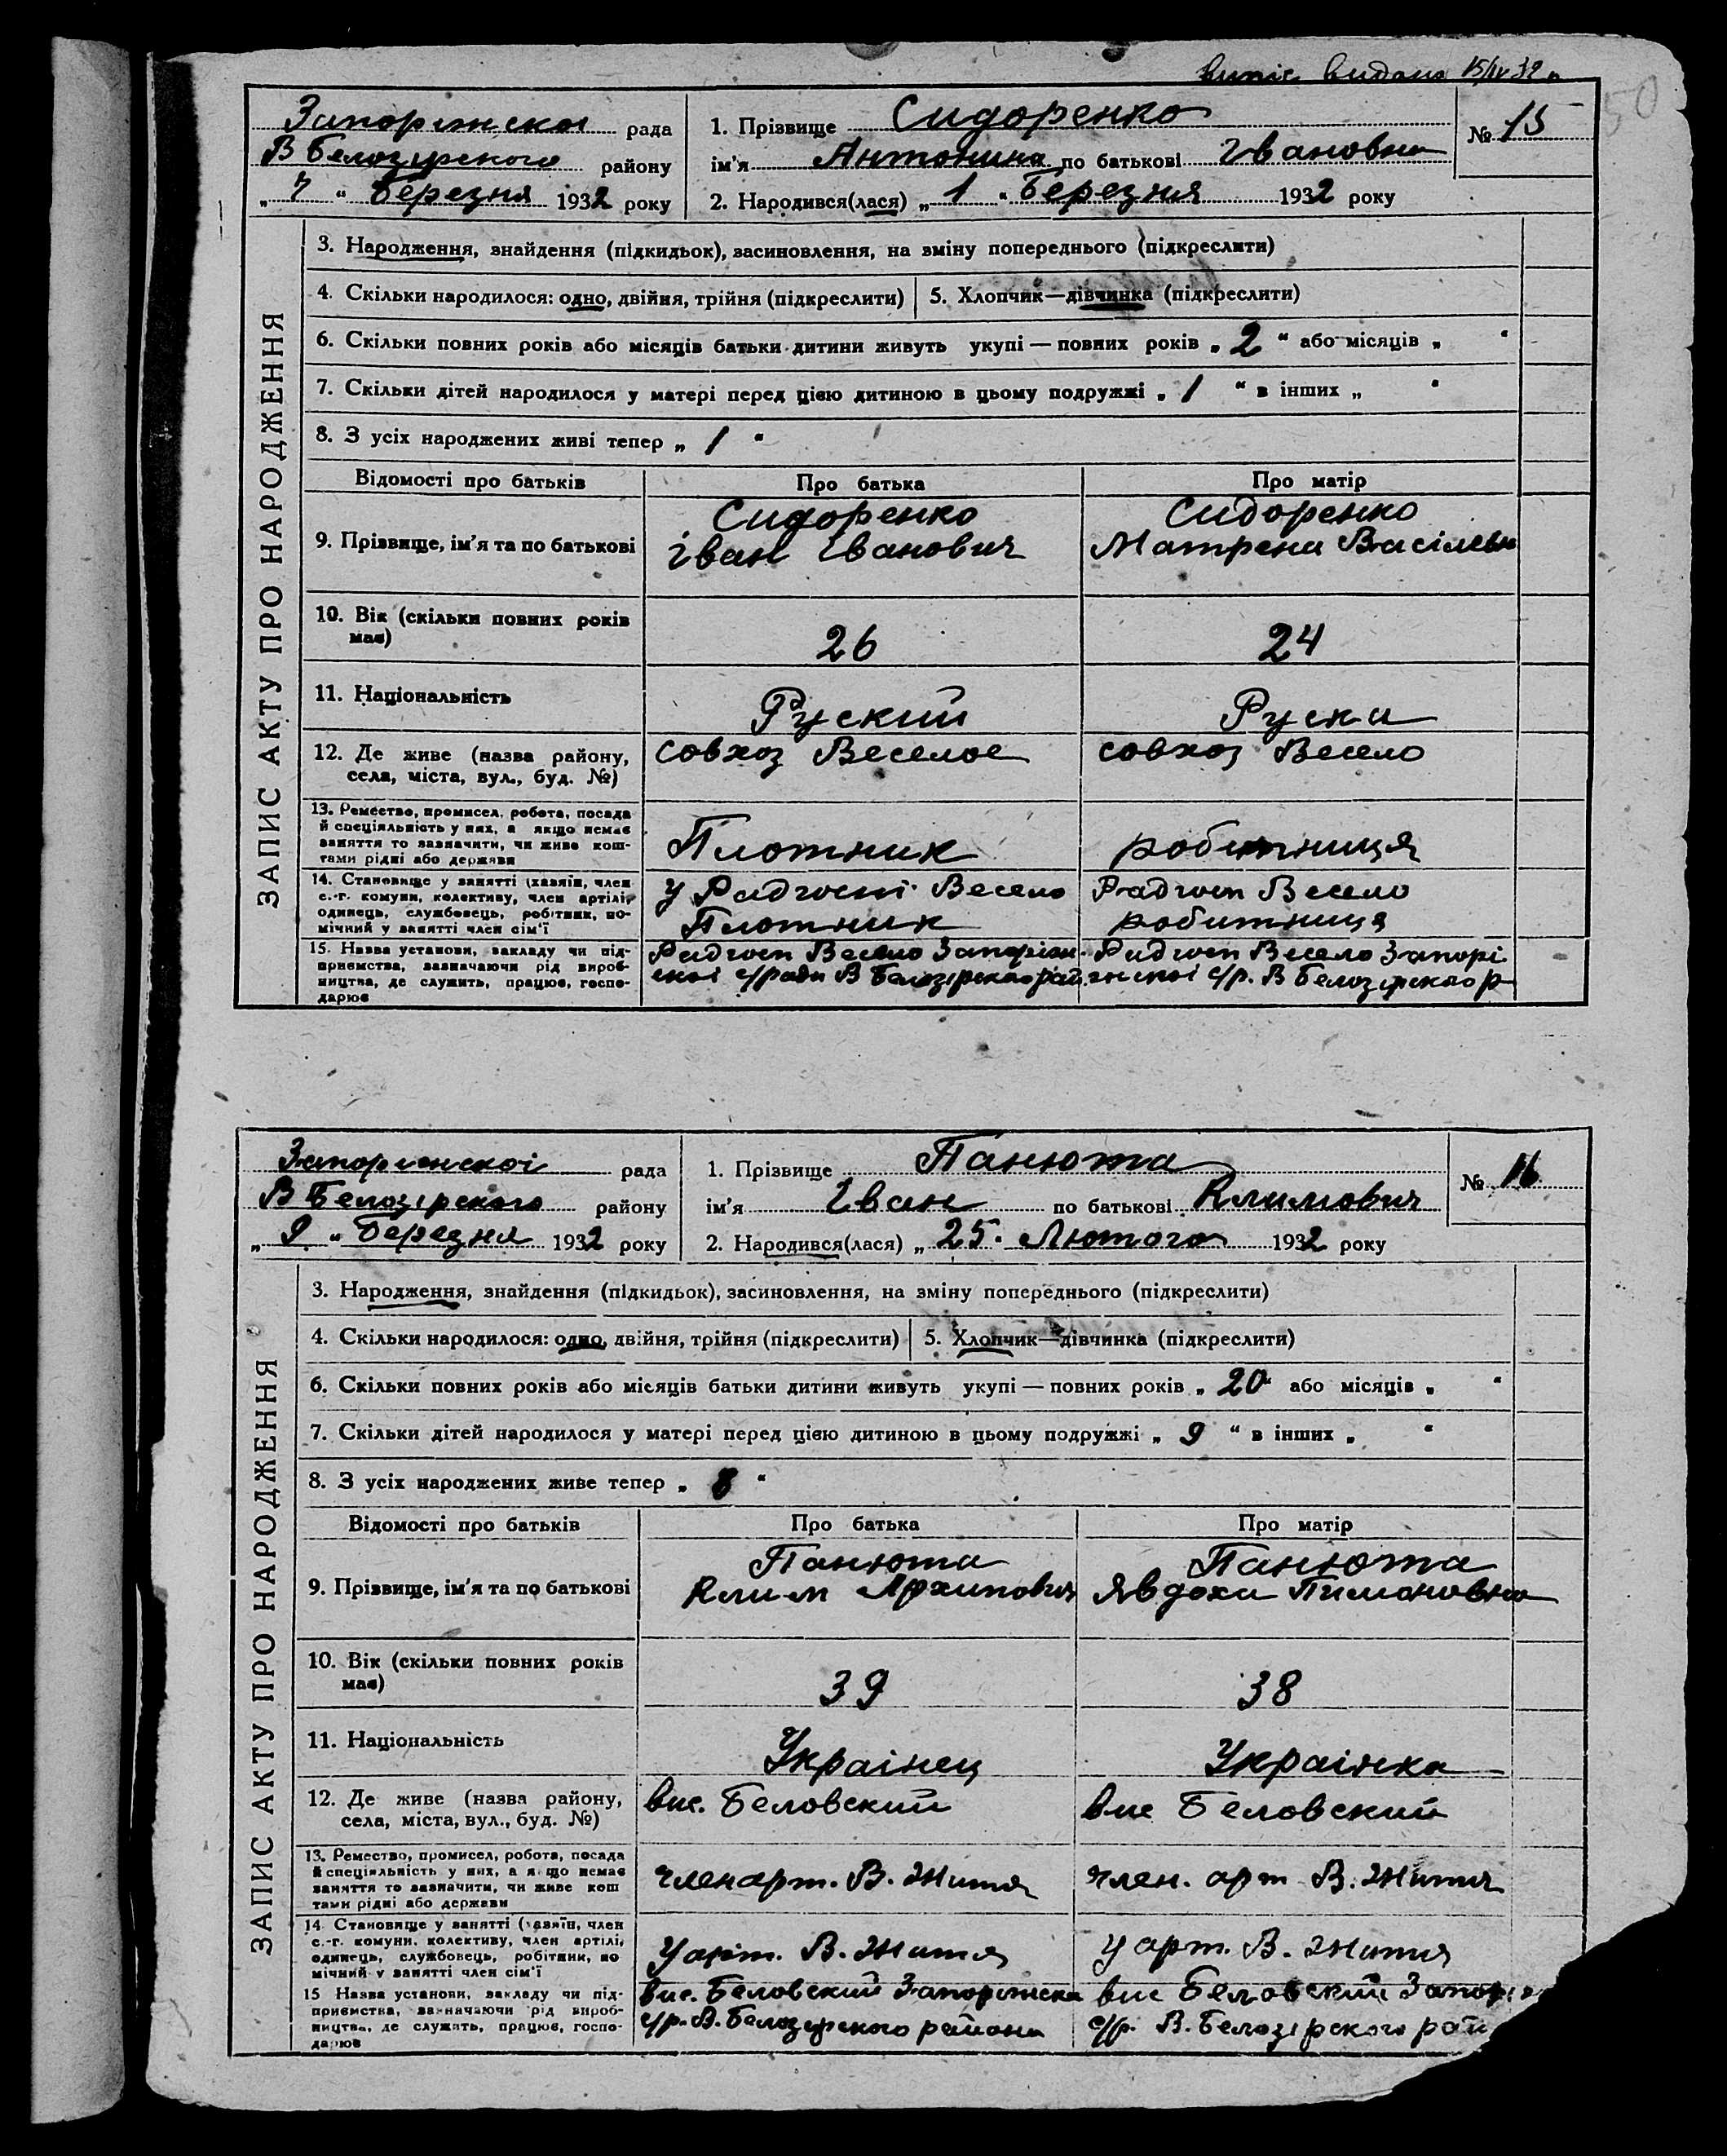 випис видано 15/IV 32 р
50
Запоріжської рада
В Белозірського району
„ 7 “ Березня 1932 року
1. Прізвище Сидоренко
ім’я Антонина по батькові Івановна
2. Народився(лася) „ 1 “ Березня 1932 року
№ 15
ЗАПИС АКТУ ПРО НАРОДЖЕННЯ
3. Народження, знайдення (підкидьок), засиновлення, на зміну попереднього (підкреслити)
4. Скільки народилося: одно, двійня, трійня (підкреслити)
5. Хлопчик—дівчинка (підкреслити)
6. Скільки повних років або місяців батьки дитини живуть укупі — повних років „ 2 “ або місяців „ “
7. Скільки дітей народилося у матері перед цією дитиною в цьому подружжі „ 1 “ в інших „ “
8. З усіх народжених живі тепер „ 1 “
Відомості про батьків
Про батька
Про матір
9. Прізвище, ім’я та по батькові
Сидоренко
Іван Іванович
Сидоренко
Матрена Васілевн
10. Вік (скільки повних років
має)
26
24
11. Національність
Руский
Руска
12. Де живе (назва району,
села, міста, вул., буд. №)
совхоз Веселое
совхоз Весело
13. Ремество, промисел, робота, посада
й спеціяльність у них, а якщо немає
заняття то зазначити, чи живе кош-
тами рідні або держави
Плотник
робитниця
14. Становище у занятті (хазяїн, член
с.-г. комуни, колективу, член артілі,
одинець, службовець, робітник, по-
мічний у занятті член сім’ї
У Радгоспі Весело
Плотник
Радгосп Весело
робитниця
15. Назва установи, закладу чи під-
приємства, зазначаючи рід вироб-
ництва, де служить, працює, госпо-
дарює
Радгосп Весело Запоріж-
ської с/ради В Белозірського рай.
Радгосп Весело Запорі
жской с/р. В Белозірского р
Запоріжскоі рада
В Белозірского району
„ 9 “ Березня 1932 року
1. Прізвище Панюта
ім’я Іван по батькові Климович
2. Народився(лася) „ 25. Лютого 1932 року
№ 16
ЗАПИС АКТУ ПРО НАРОДЖЕННЯ
3. Народження, знайдення (підкидьок), засиновлення, на зміну попереднього (підкреслити)
4. Скільки народилося: одно, двійня, трійня (підкреслити)
5. Хлопчик—дівчинка (підкреслити)
6. Скільки повних років або місяців батьки дитини живуть укупі — повних років „ 20 “ або місяців „ “
7. Скільки дітей народилося у матері перед цією дитиною в цьому подружжі „ 9 “ в інших „ “
8. З усіх народжених живе тепер „ 8 “
Відомості про батьків
Про батька
Про матір
9. Прізвище, ім’я та по батькові
Панюта
Клим Архипович
Панюта
Явдоха Пимоновна
10. Вік (скільки повних років
має)
39
38
11. Національність
Украінец
Украінка
12. Де живе (назва району,
села, міста, вул., буд. №)
вис. Беловский
вис Беловский
13. Ремество, промисел, робота, посада
й спеціяльність у них, а якщо немає
заняття то зазначити, чи живе кош
тами рідні або держави
член арт. В. Життя
член. арт В. Життя
14. Становище у занятті (хазяїн, член
с.-г. комуни, колективу, член артілі,
одинець, службовець, робітник, по
мічний у занятті член сім’ї
У арт. В. Життя
У арт. В. Життя
15 Назва установи, закладу чи під-
приємства, зазначаючи рід вироб-
ництва, де служить, працює, госпо-
дарює
вис. Беловский Запоріжска
с/р. В. Белозірского района
вис Беловский Запорі
с/р. В. Белозірского рай